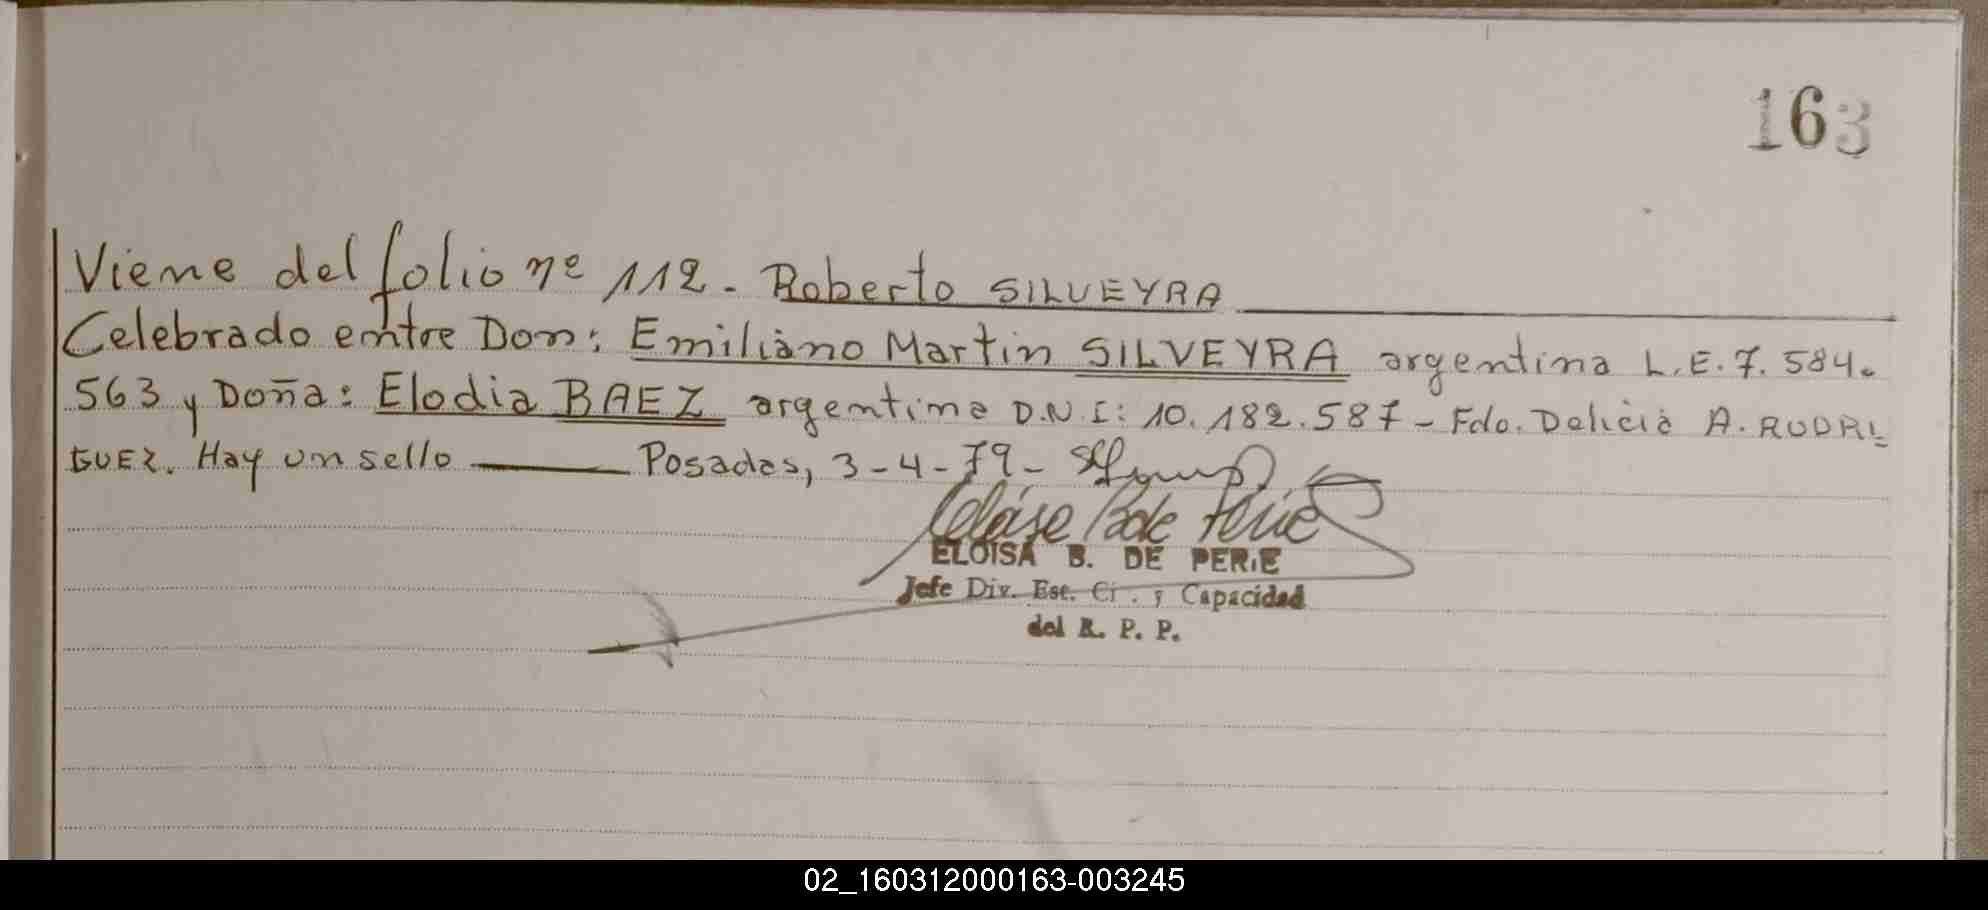 163
Viene del folio nº 112. Roberto SILVEYRA
Celebrado entre Don: Emiliano Martin SILVEYRA argentino L.E. 7.584.
563 y Doña: Elodia BAEZ argentina D.N.I: 10.182.587 - Fdo. Delicia A. RODRI_
GUEZ. Hay un sello ——— Posadas, 3-4-79-
ELOISA B. DE PERIE
Jefe Div. Est. Ci . y Capacidad
del R. P. P.
02_160312000163-003245